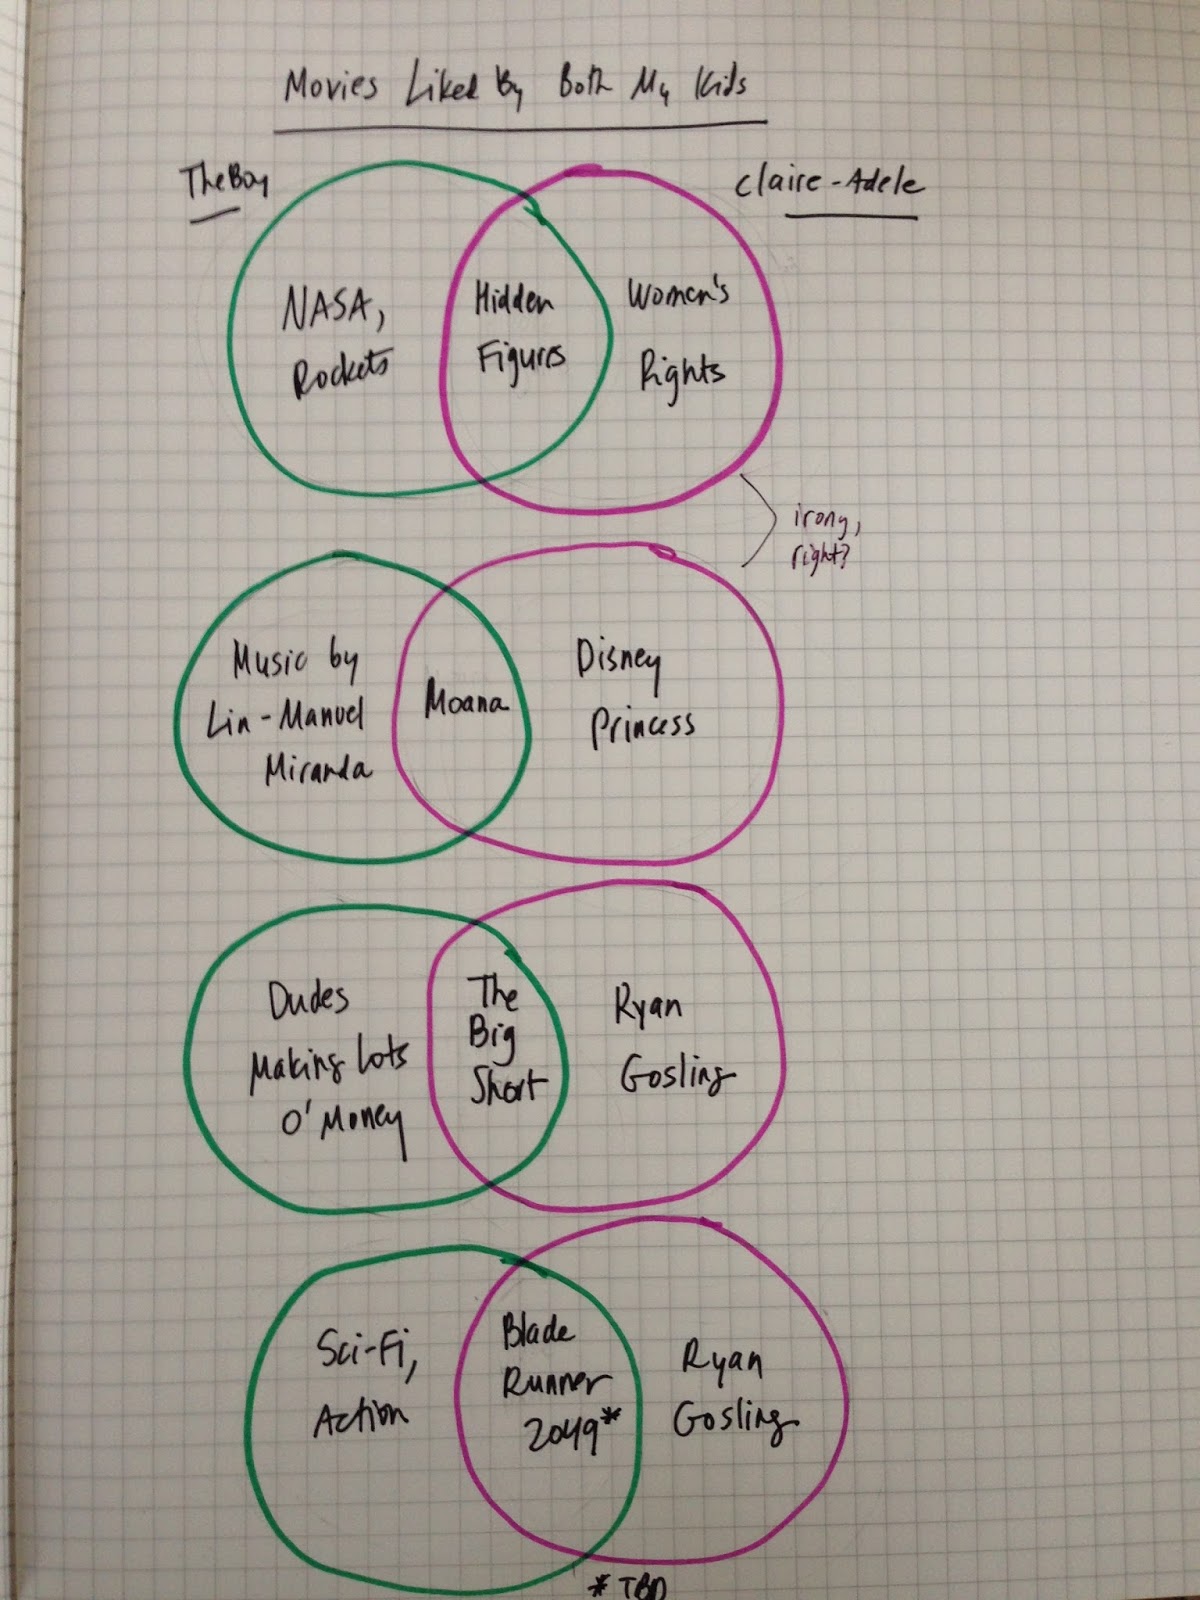 Movies Liked By Both My Kids
The Boy
Claire-Adele
NASA,
Rockets
Hidden
Figures
Women's
Rights
irony,
right?
Music by
Lin-Manuel
Miranda
Moana
Disney
Princess
Dudes
Making Lots
O' Money
The
Big
Short
Ryan
Gosling
Sci-Fi,
Action
Blade
Runner
2049*
Ryan
Gosling
* TBD